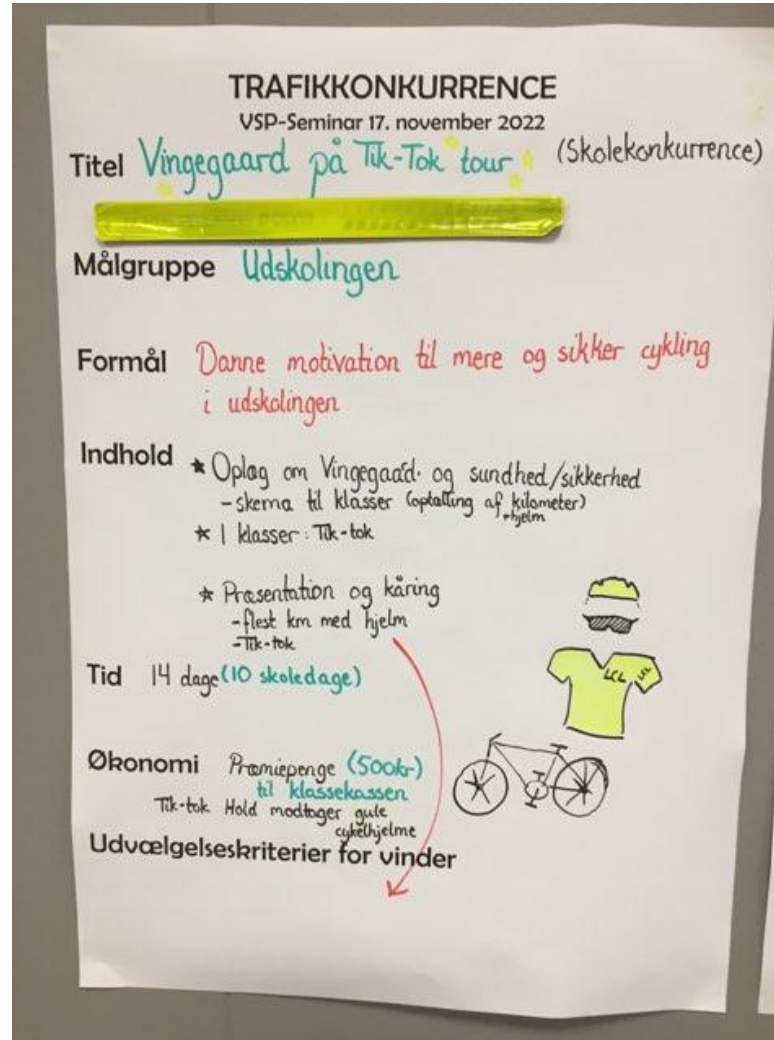 TRAFIKKONKURRENCE
VSP-Seminar 17. november 2022
Titel Vingegaard på Tik-Tok tour (Skolekonkurrence)
Målgruppe Udskolingen
Formål Danne motivation til mere og sikker cykling
i udskolingen
Indhold * Oplæg om Vingegaard. og sundhed/sikkerhed
- skema til klasser (optælling af kilometer)
+hjelm
* I klasser: Tik-tok
* Præsentation og kåring
- flest km med hjelm
- Tik-tok
Tid 14 dage (10 skoledage)
LCL LCL
Økonomi Præmiepenge (500kr)
til klassekassen
Tik-tok Hold modtager gule
cykelhjelme
Udvælgelseskriterier for vinder